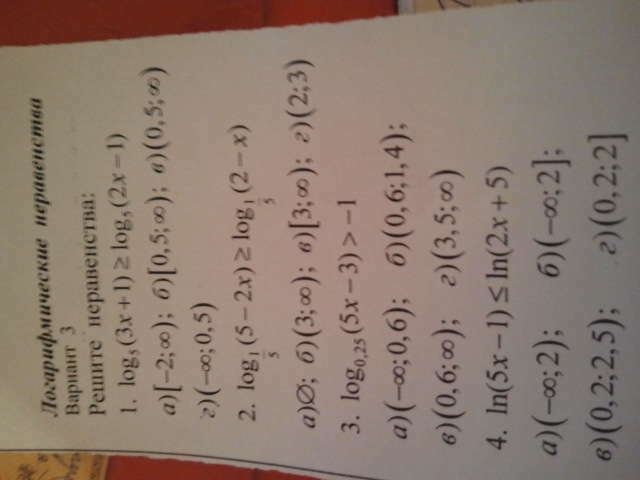 Логарифмические неравенства
Вариант 3
Решите неравенства:
1. log₅(3x+1) ≥ log₅(2x−1)
а)[−2;∞); б)[0,5;∞); в)(0,5;∞)
г)(−∞;0,5)
2. log_{1/5}(5−2x) ≥ log_{1/5}(2−x)
а)∅; б)(3;∞); в)[3;∞); г)(2;3)
3. log₀,₂₅(5x−3) > −1
а)(−∞;0,6); б)(0,6;1,4);
в)(0,6;∞); г)(3,5;∞)
4. ln(5x−1) ≤ ln(2x+5)
а)(−∞;2); б)(−∞;2];
в)(0,2;2,5); г)(0,2;2]